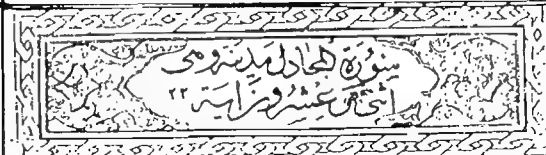 سورة المجادلة مدنية وهي
اثنتان وعشرون آية ٢٢